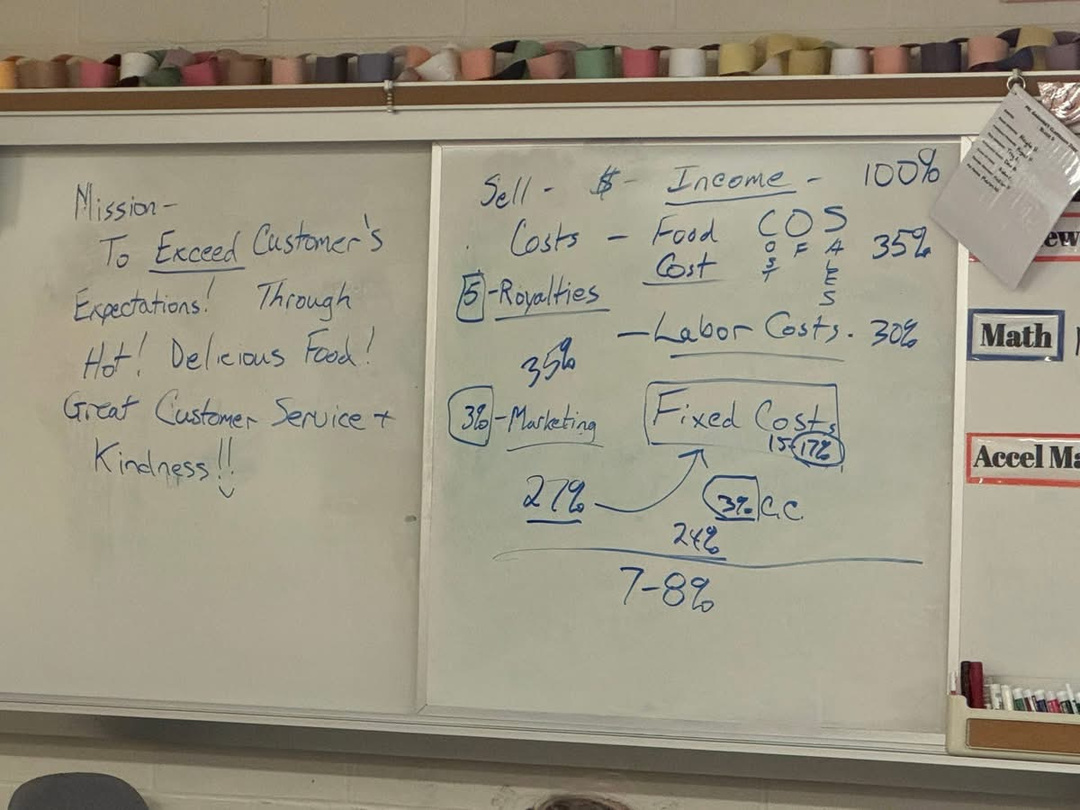 Mission-
To Exceed Customer's
Expectations! Through
Hot! Delicious Food!
Great Customer Service +
Kindness!!
Sell - $ - Income - 100%
Costs - Food COS 35%
Cost
OST
F
ALES
5 - Royalties
- Labor Costs. 30%
35%
3% - Marketing
Fixed Costs
15-17%
27%
3% C.C.
24%
7-8%
Math
Accel Ma
ew